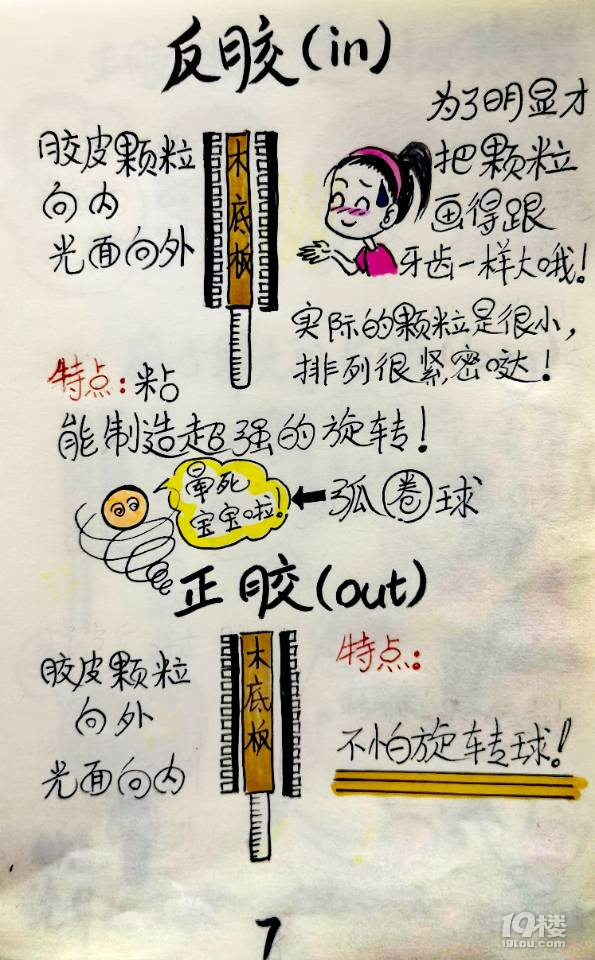 反胶(in)
胶皮颗粒
向内
光面向外
木底板
为了明显才
把颗粒
画得跟
牙齿一样大哦！
实际的颗粒是很小，
排列很紧密哒！
特点：粘
能制造超强的旋转！
晕死
宝宝啦！
弧圈球
正胶(out)
胶皮颗粒
向外
光面向内
木底板
特点：
不怕旋转球！
7
19楼
19lou.com